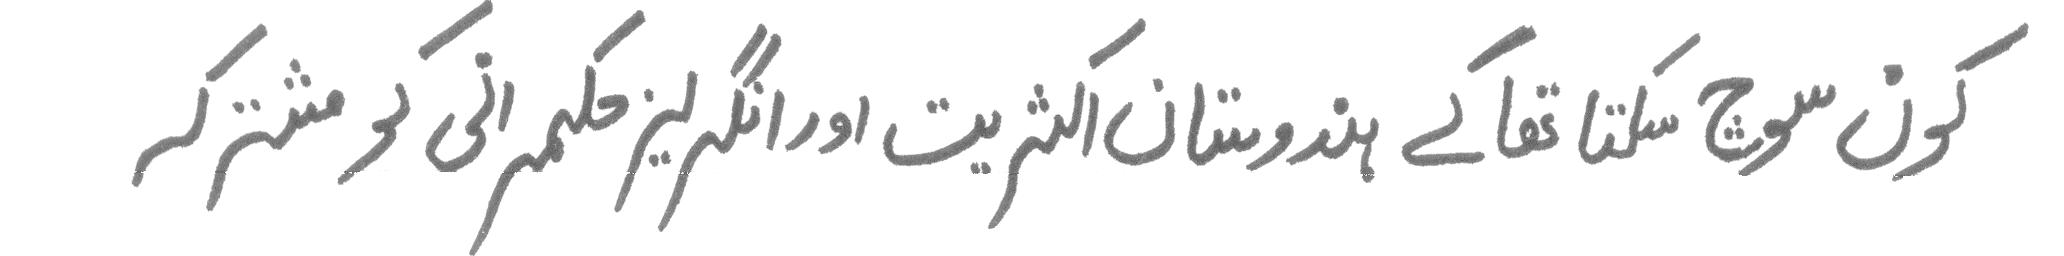 کون سوچ سکتا تھا کے ہندوستان اکثریت اور انگریز حکمرانی کو مشترکہ